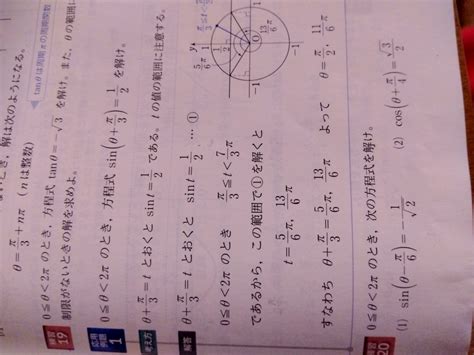 いとき,解は次のようになる。
θ=π/3+nπ (nは整数)
tanθは周期πの周期関数
練習 19 0≦θ<2πのとき,方程式 tanθ=-√3 を解け。また,θの範囲に
制限がないときの解を求めよ。
応用例題 1 0≦θ<2πのとき,方程式 sin(θ+π/3)=1/2 を解け。
考え方 θ+π/3=t とおくと sint=1/2 である。tの値の範囲に注意する。
解答 θ+π/3=t とおくと sint=1/2 …①
0≦θ<2πのとき π/3≦t<7/3π
であるから,この範囲で①を解くと
t=5/6π, 13/6π
すなわち θ+π/3=5/6π, 13/6π よって θ=π/2, 11/6π
y
1
1/2
5/6π
13/6π
①
-1
1
-1
20 0≦θ<2πのとき,次の方程式を解け。
(1) sin(θ-π/6)=-1/√2 (2) cos(θ+π/4)=√3/2